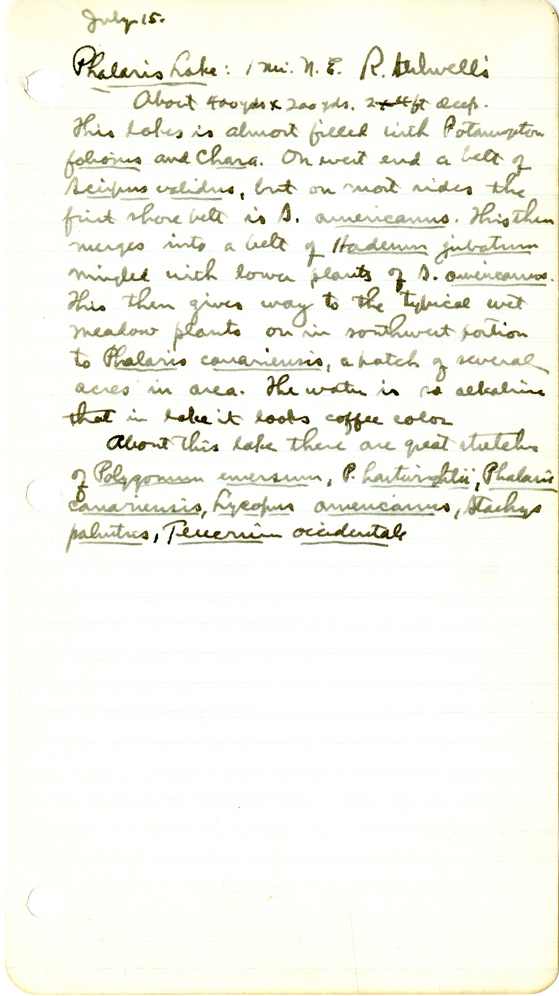 July 15.
Phalaris Lake: 1 mi. N. E. R. Stilwell's
About 400yds x 200yds. 2 ft deep.
This lakes is almost filled with Potamogeton
foliosus and Chara. On west end a belt of
Scirpus validus, but on most sides the
first shore belt is S. americanus. This then
merges into a belt of Hadeum jubatum
mingled with lower plants of S. americanus.
This then gives way to the typical wet
meadow plants or in southwest portion
to Phalaris canariensis, a patch of several
acres in area. The water is so alkaline
that in lake it looks coffee color
About this lake there are great stretches
of Polygonum emersum, P. hartwrightii, Phalaris
canariensis, Lycopus americanus, Stachys
palustris, Teucrium occidentale